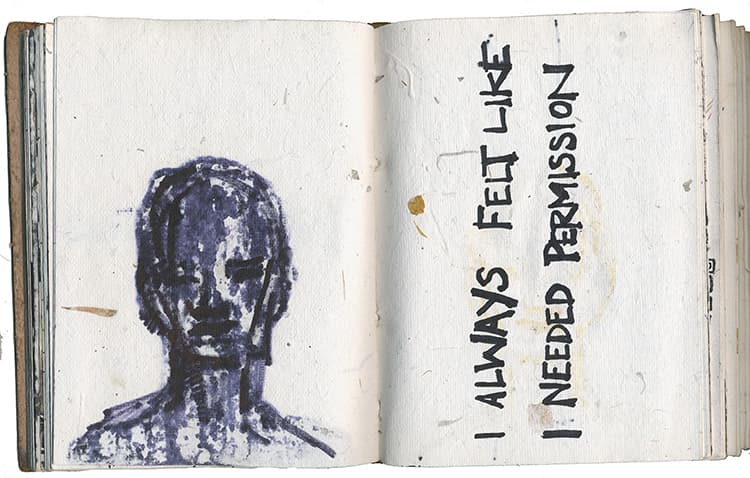 I ALWAYS FELT LIKE
I NEEDED PERMISSION